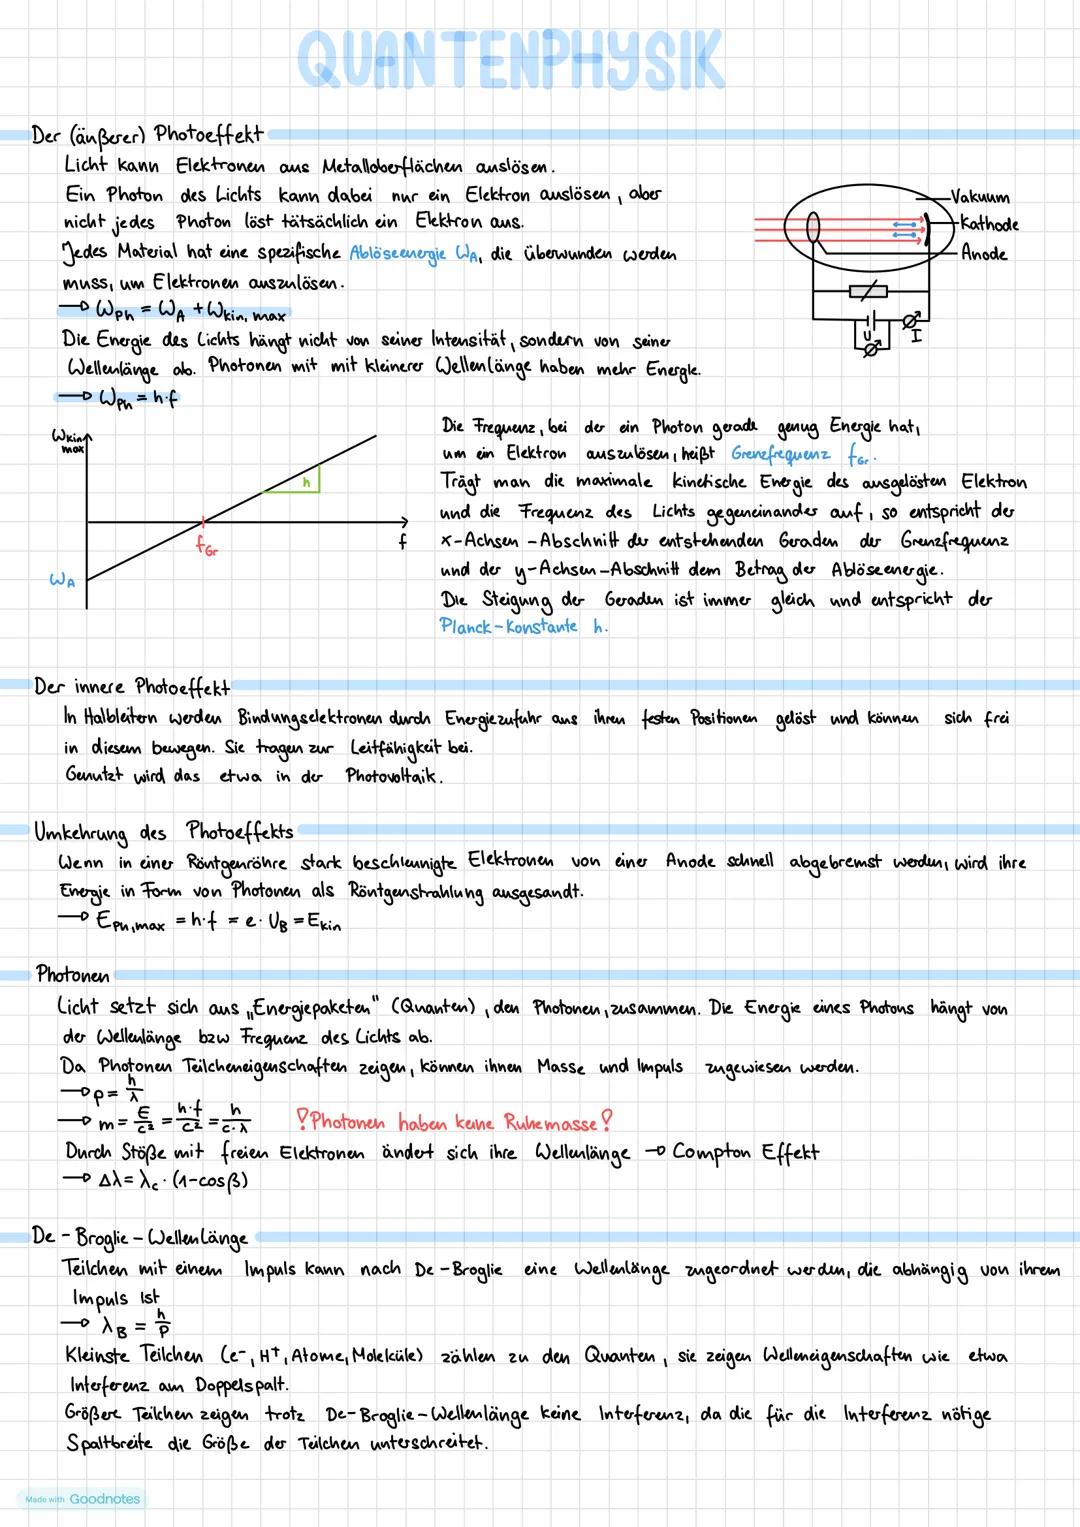 QUANTENPHYSIK
Der (äußerer) Photoeffekt
Licht kann Elektronen aus Metalloberflächen auslösen.
Ein Photon des Lichts kann dabei nur ein Elektron auslösen, aber
nicht jedes Photon löst tatsächlich ein Elektron aus.
Jedes Material hat eine spezifische Ablöseenergie W_A, die überwunden werden
muss, um Elektronen auszulösen.
→ W_Ph = W_A + W_kin, max
Die Energie des Lichts hängt nicht von seiner Intensität, sondern von seiner
Wellenlänge ab. Photonen mit mit kleinerer Wellenlänge haben mehr Energie.
→ W_Ph = h·f
Vakuum
Kathode
Anode
U
I
W_kin max
h
f_Gr
f
W_A
Die Frequenz, bei der ein Photon gerade genug Energie hat,
um ein Elektron auszulösen, heißt Grenzfrequenz f_Gr.
Trägt man die maximale kinetische Energie des ausgelösten Elektron
und die Frequenz des Lichts gegeneinander auf, so entspricht der
x-Achsen-Abschnitt der entstehenden Geraden der Grenzfrequenz
und der y-Achsen-Abschnitt dem Betrag der Ablöseenergie.
Die Steigung der Geraden ist immer gleich und entspricht der
Planck-Konstante h.
Der innere Photoeffekt
In Halbleitern werden Bindungselektronen durch Energiezufuhr aus ihren festen Positionen gelöst und können sich frei
in diesem bewegen. Sie tragen zur Leitfähigkeit bei.
Genutzt wird das etwa in der Photovoltaik.
Umkehrung des Photoeffekts
Wenn in einer Röntgenröhre stark beschleunigte Elektronen von einer Anode schnell abgebremst werden, wird ihre
Energie in Form von Photonen als Röntgenstrahlung ausgesandt.
→ E_Ph,max = h·f = e·U_B = E_kin
Photonen
Licht setzt sich aus „Energiepaketen" (Quanten), den Photonen, zusammen. Die Energie eines Photons hängt von
der Wellenlänge bzw Frequenz des Lichts ab.
Da Photonen Teilcheneigenschaften zeigen, können ihnen Masse und Impuls zugewiesen werden.
→ p = h/λ
→ m = E/c² = h·f/c² = h/c·λ !Photonen haben keine Ruhemasse!
Durch Stöße mit freien Elektronen ändert sich ihre Wellenlänge → Compton Effekt
→ Δλ = λ_c · (1-cosβ)
De-Broglie-Wellenlänge
Teilchen mit einem Impuls kann nach De-Broglie eine Wellenlänge zugeordnet werden, die abhängig von ihrem
Impuls ist
→ λ_B = h/p
Kleinste Teilchen (e⁻, H⁺, Atome, Moleküle) zählen zu den Quanten, sie zeigen Welleneigenschaften wie etwa
Interferenz am Doppelspalt.
Größere Teilchen zeigen trotz De-Broglie-Wellenlänge keine Interferenz, da die für die Interferenz nötige
Spaltbreite die Größe der Teilchen unterschreitet.
Made with Goodnotes